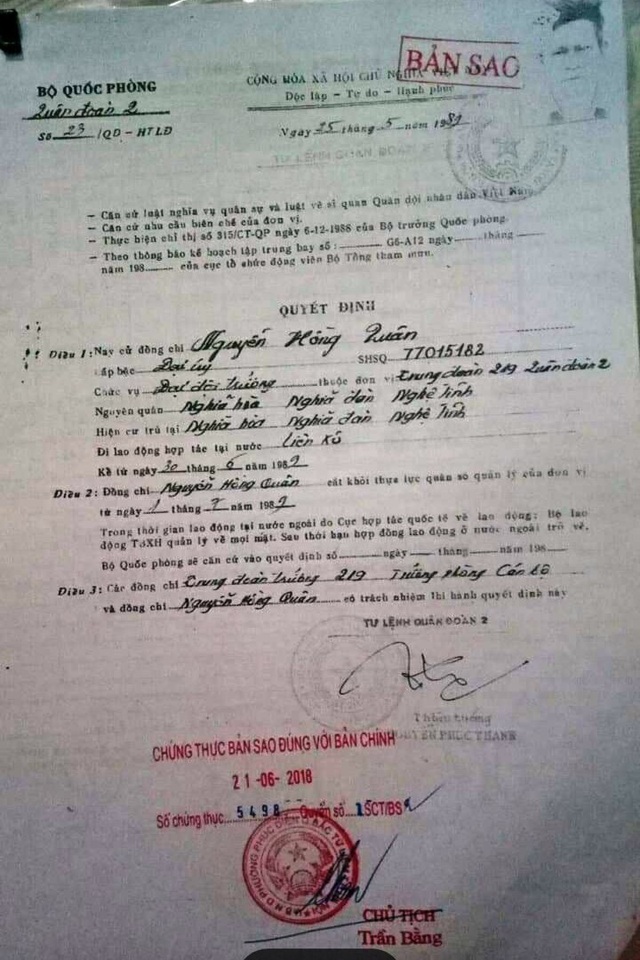 BẢN SAO
BỘ QUỐC PHÒNG
Quân đoàn 2
Số 23 /QĐ - HTLĐ
CỘNG HÒA XÃ HỘI CHỦ NGHĨA VIỆT NAM
Độc lập - Tự do - Hạnh phúc
Ngày 25 tháng 5 năm 1989
TƯ LỆNH QUÂN ĐOÀN 2
- Căn cứ luật nghĩa vụ quân sự và luật về sĩ quan Quân đội nhân dân Việt Nam.
- Căn cứ nhu cầu biên chế của đơn vị.
- Thực hiện chỉ thị số 315/CT-QP ngày 6-12-1988 của Bộ trưởng Quốc phòng.
- Theo thông báo kế hoạch tập trung bay số : G6-A12 ngày tháng
năm 198 của cục tổ chức động viên Bộ Tổng tham mưu.
QUYẾT ĐỊNH
Điều 1 : Nay cử đồng chí Nguyễn Hồng Quân
Cấp bậc Đại úy SHSQ 77015182
Chức vụ Đại đội trưởng thuộc đơn vị Trung đoàn 219 Quân đoàn 2
Nguyên quán Nghĩa hòa Nghĩa đàn Nghệ Tĩnh
Hiện cư trú tại Nghĩa hòa Nghĩa đàn Nghệ Tĩnh
Đi lao động hợp tác tại nước Liên Xô
Kể từ ngày 30 tháng 6 năm 1989
Điều 2 : Đồng chí Nguyễn Hồng Quân cắt khỏi thực lực quân số quản lý của đơn vị
từ ngày 1 tháng 7 năm 1989
Trong thời gian lao động tại nước ngoài do Cục hợp tác quốc tế về lao động; Bộ lao
động TBXH quản lý về mọi mặt. Sau thời hạn hợp đồng lao động ở nước ngoài trở về,
Bộ Quốc phòng sẽ căn cứ vào quyết định số ngày tháng năm 198
Điều 3 : Các đồng chí Trung đoàn trưởng 219 Trưởng phòng Cán bộ
và đồng chí Nguyễn Hồng Quân có trách nhiệm thi hành quyết định này
TƯ LỆNH QUÂN ĐOÀN 2
Thiếu tướng
NGUYỄN PHÚC THANH
CHỨNG THỰC BẢN SAO ĐÚNG VỚI BẢN CHÍNH
21-06-2018
Số chứng thực 5498 Quyển số 1 SCT/BS
CHỦ TỊCH
Trần Bằng